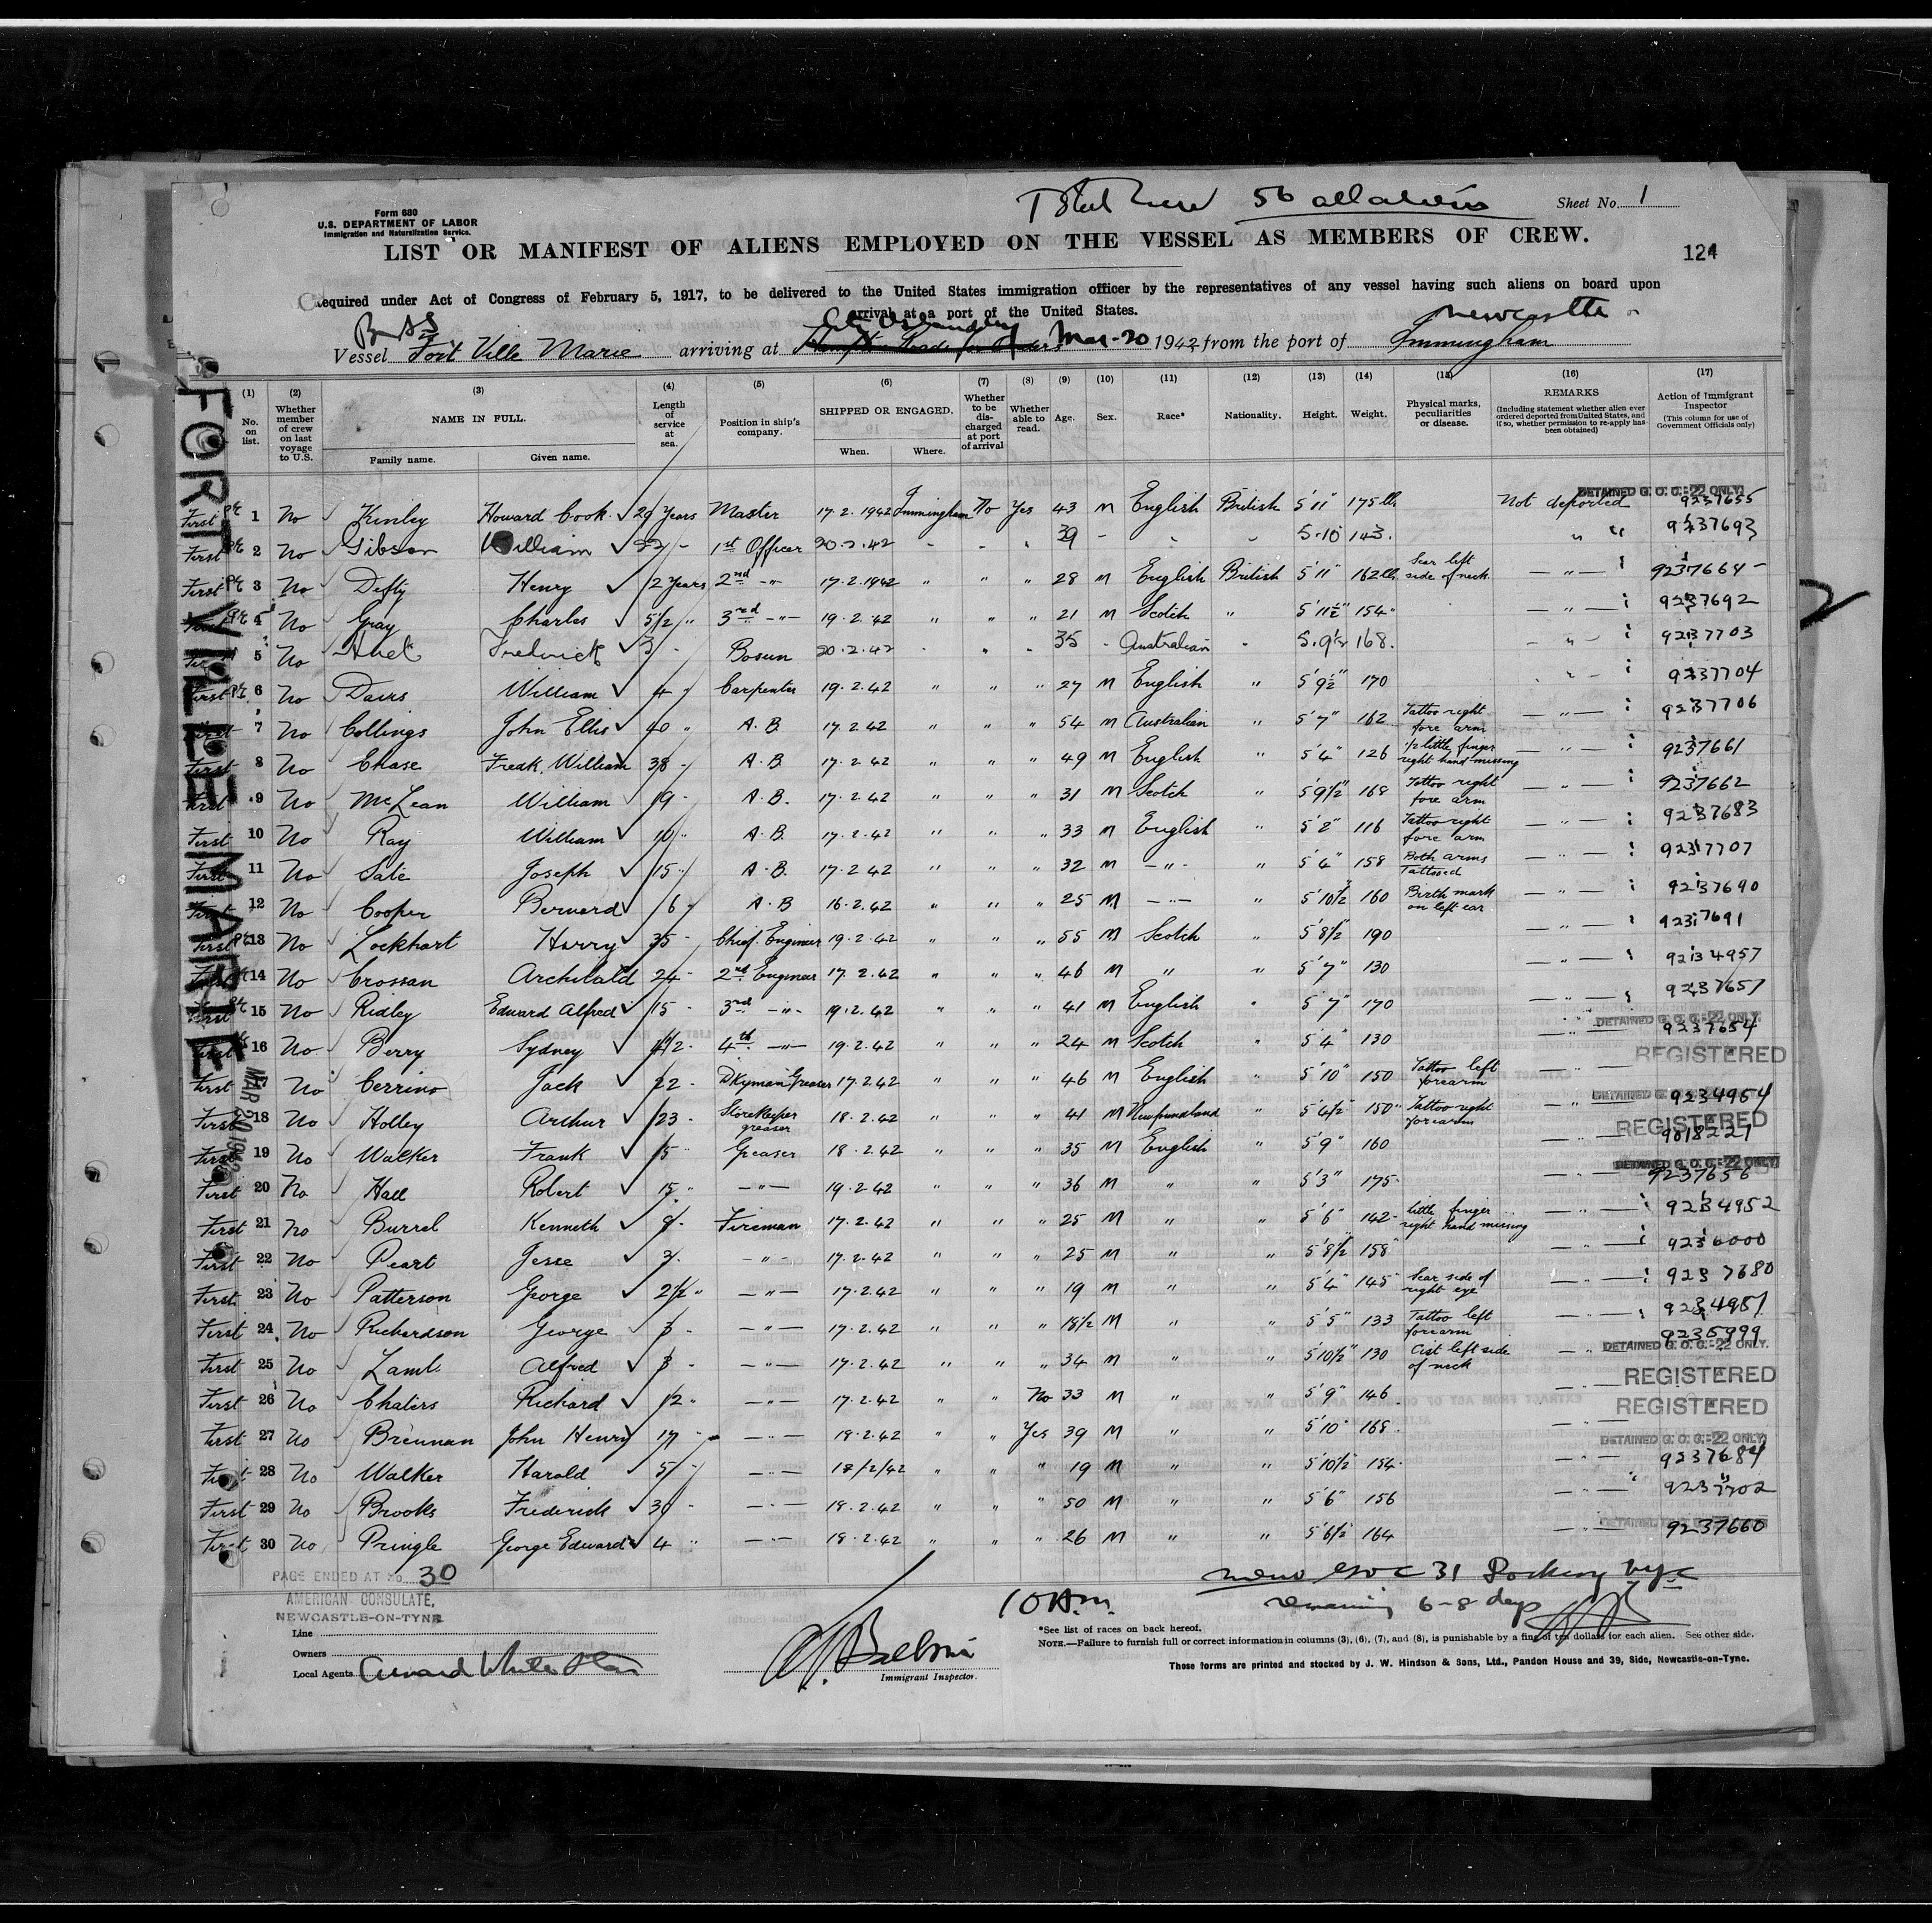 Form 680
U.S. DEPARTMENT OF LABOR
Immigration and Naturalization Service.
56 all aliens
Sheet No. 1
LIST OR MANIFEST OF ALIENS EMPLOYED ON THE VESSEL AS MEMBERS OF CREW.
124
Required under Act of Congress of February 5, 1917, to be delivered to the United States immigration officer by the representatives of any vessel having such aliens on board upon
arrival at a port of the United States.
Newcastle
Vessel Fort Ville Marie arriving at Mar-20 1942 from the port of Immingham
FORT VILLE MARIE
MAR 20 1942
(1) (2) (3) (4) (5) (6) (7) (8) (9) (10) (11) (12) (13) (14) (15) (16) (17)
No. on list. Whether member of crew on last voyage to U.S. NAME IN FULL. Length of service at sea. Position in ship's company. SHIPPED OR ENGAGED. Whether to be discharged at port of arrival Whether able to read. Age. Sex. Race* Nationality. Height. Weight. Physical marks, peculiarities or disease. REMARKS (Including statement whether alien ever ordered deported from United States, and if so, whether permission to re-apply has been obtained) Action of Immigrant Inspector (This column for use of Government Officials only)
Family name. Given name. When. Where.
DETAINED G. O. C.-22 ONLY.
First 1 No Kinley Howard Cook 29 Years Master 17.2.1942 Immingham No Yes 43 M English British 5'11" 175 lb Not deported 9237655
First 2 No Gibson William 22 - 1st Officer 20.2.42 - - - 39 - - - 5.10 143. " " 9237693
First 3 No Defty Henry 12 Years 2nd -"- 17.2.1942 " " " 28 M English British 5'11" 162 lb Scar left side of neck -"- 9237664
First 4 No Gray Charles 5½ " 3rd -"- 19.2.42 " " " 21 M Scotch " 5'11½" 154 -"- 9237692
5 No Frederick 3 - Bosun 20.2.42 - " - 35 - Australian - 5.9½ 168. -"- 9237703
First 6 No Davis William 4 Carpenter 19.2.42 " " " 27 M English " 5'9½" 170 -"- 9237704
First 7 No Collings John Ellis 40 " A.B. 17.2.42 " " " 54 M Australian " 5'7" 162 Tattoo right fore arm -"- 9237706
First 8 No Chase Fredk. William 38 - A.B. 17.2.42 " " " 49 M English " 5'4" 126 1/2 little finger right hand missing -"- 9237661
First 9 No McLean William 19 - A.B. 17.2.42 " " " 31 M Scotch " 5'9½" 168 Tattoo right fore arm -"- 9237662
First 10 No Ray William 10 " A.B. 17.2.42 " " " 33 M English " 5'2" 116 Tattoo right fore arm -"- 9237683
First 11 No Sale Joseph 15 " A.B. 17.2.42 " " " 32 M -"- " 5'4" 158 Both arms Tattooed -"- 9237707
First 12 No Cooper Bernard 6 - A.B 16.2.42 " " " 25 M -"- " 5'10½" 160 Birth mark on left ear -"- 9237690
First 13 No Lockhart Harry 35 - Chief Engineer 19.2.42 " " " 55 M Scotch " 5'8½" 190 -"- 9237691
First 14 No Crossan Archibald 24 - 2nd Engineer 17.2.42 " " " 46 M " " 5'7" 130 -"- 9234957
First 15 No Ridley Edward Alfred 15 - 3rd -"- 19.2.42 " " " 41 M English " 5'7" 170 -"- 9237657
DETAINED G. O. C.-22 ONLY.
First 16 No Berry Sydney 4½ - 4th -"- 19.2.42 " " " 24 M Scotch " 5'4" 130 -"- 9237654
REGISTERED
First 17 No Cerrino Jack 22 - Dkyman Greaser 17.2.42 " " " 46 M English " 5'10" 150 Tattoo left forearm -"-
DETAINED G. O. C.-22 ONLY.
First 18 No Holley Arthur 23 - Storekeeper greaser 18.2.42 " " " 41 M Newfoundland " 5'4½" 150 Tattoo right forearm -"- 9234964
REGISTERED
First 19 No Walker Frank 15 " Greaser 18.2.42 " " " 35 M English " 5'9" 160 -"- 9018221
DETAINED G. O. C.-22 ONLY.
First 20 No Hall Robert 15 " -"- 19.2.42 " " " 36 M " " 5'3" 175 -"- 9237656
First 21 No Burrel Kenneth 8 - Fireman 17.2.42 " " " 25 M " " 5'6" 142 little finger right hand missing -"- 9234952
First 22 No Peart Jesse 3 - -"- 17.2.42 " " " 25 M " " 5'8½" 158 -"- 9236000
First 23 No Patterson George 2½ " -"- 17.2.42 " " " 19 M " " 5'4" 145 Scar side of right eye -"- 9237680
First 24 No Richardson George 3 - -"- 17.2.42 " " " 18½ M " " 5'5" 133 Tattoo left forearm -"- 9234951
9235999
DETAINED G. O. C.-22 ONLY.
First 25 No Lamb Alfred 3 - -"- 17.2.42 " " " 34 M " " 5'10½" 130 Cist left side of neck -"-
REGISTERED
First 26 No Chalirs Richard 12 " -"- 17.2.42 " " No 33 M " " 5'9" 146 -"-
REGISTERED
First 27 No Brennan John Henry 17 " -"- 18.2.42 " " Yes 39 M " " 5'10" 168 -"-
DETAINED G. O. C.-22 ONLY.
First 28 No Walker Harold 5 - -"- 18/2/42 " " " 19 M " " 5'10½" 154 -"- 9237684
First 29 No Brooks Frederick 30 - -"- 18.2.42 " " " 50 M " " 5'6" 156 -"- 9237702
DETAINED G. O. C.-22 ONLY.
First 30 No Pringle George Edward 4 " -"- 18.2.42 " " " 26 M " " 5'6½" 164 -"- 9237660
PAGE ENDED AT No. 30
AMERICAN CONSULATE,
NEWCASTLE-ON-TYNE
10 A.m.
remaining 6-8 days
Line
Owners
Local Agents Cunard White Star
Immigrant Inspector.
*See list of races on back hereof.
NOTE.—Failure to furnish full or correct information in columns (3), (6), (7), and (8), is punishable by a fine of ten dollars for each alien. See other side.
These forms are printed and stocked by J. W. Hindson & Sons, Ltd., Pandon House and 39, Side, Newcastle-on-Tyne.
2